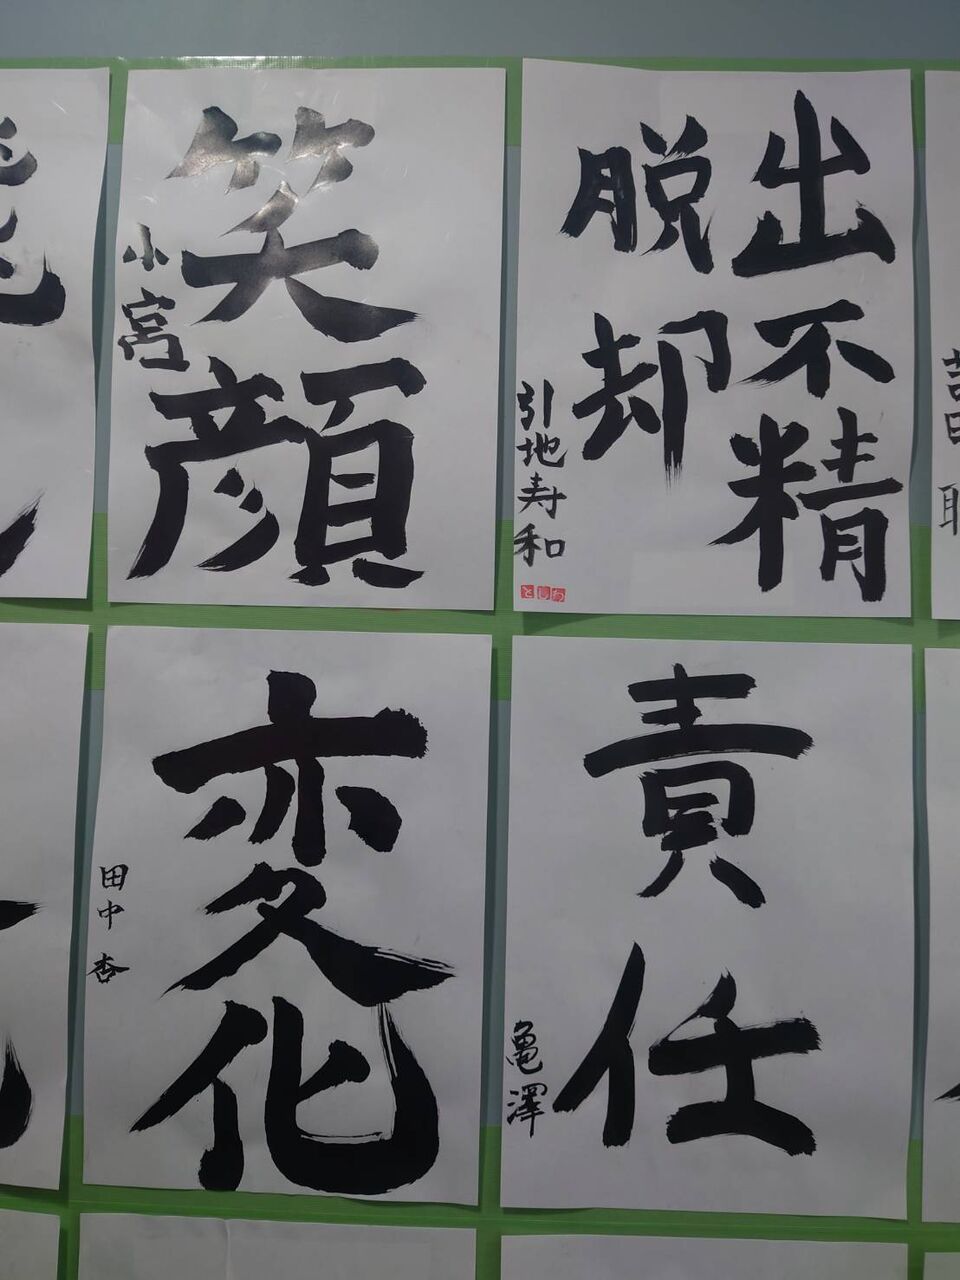 笑顔
小宮
出不精
脱却
引地寿和
としわ
変化
田中 杏
責任
亀澤